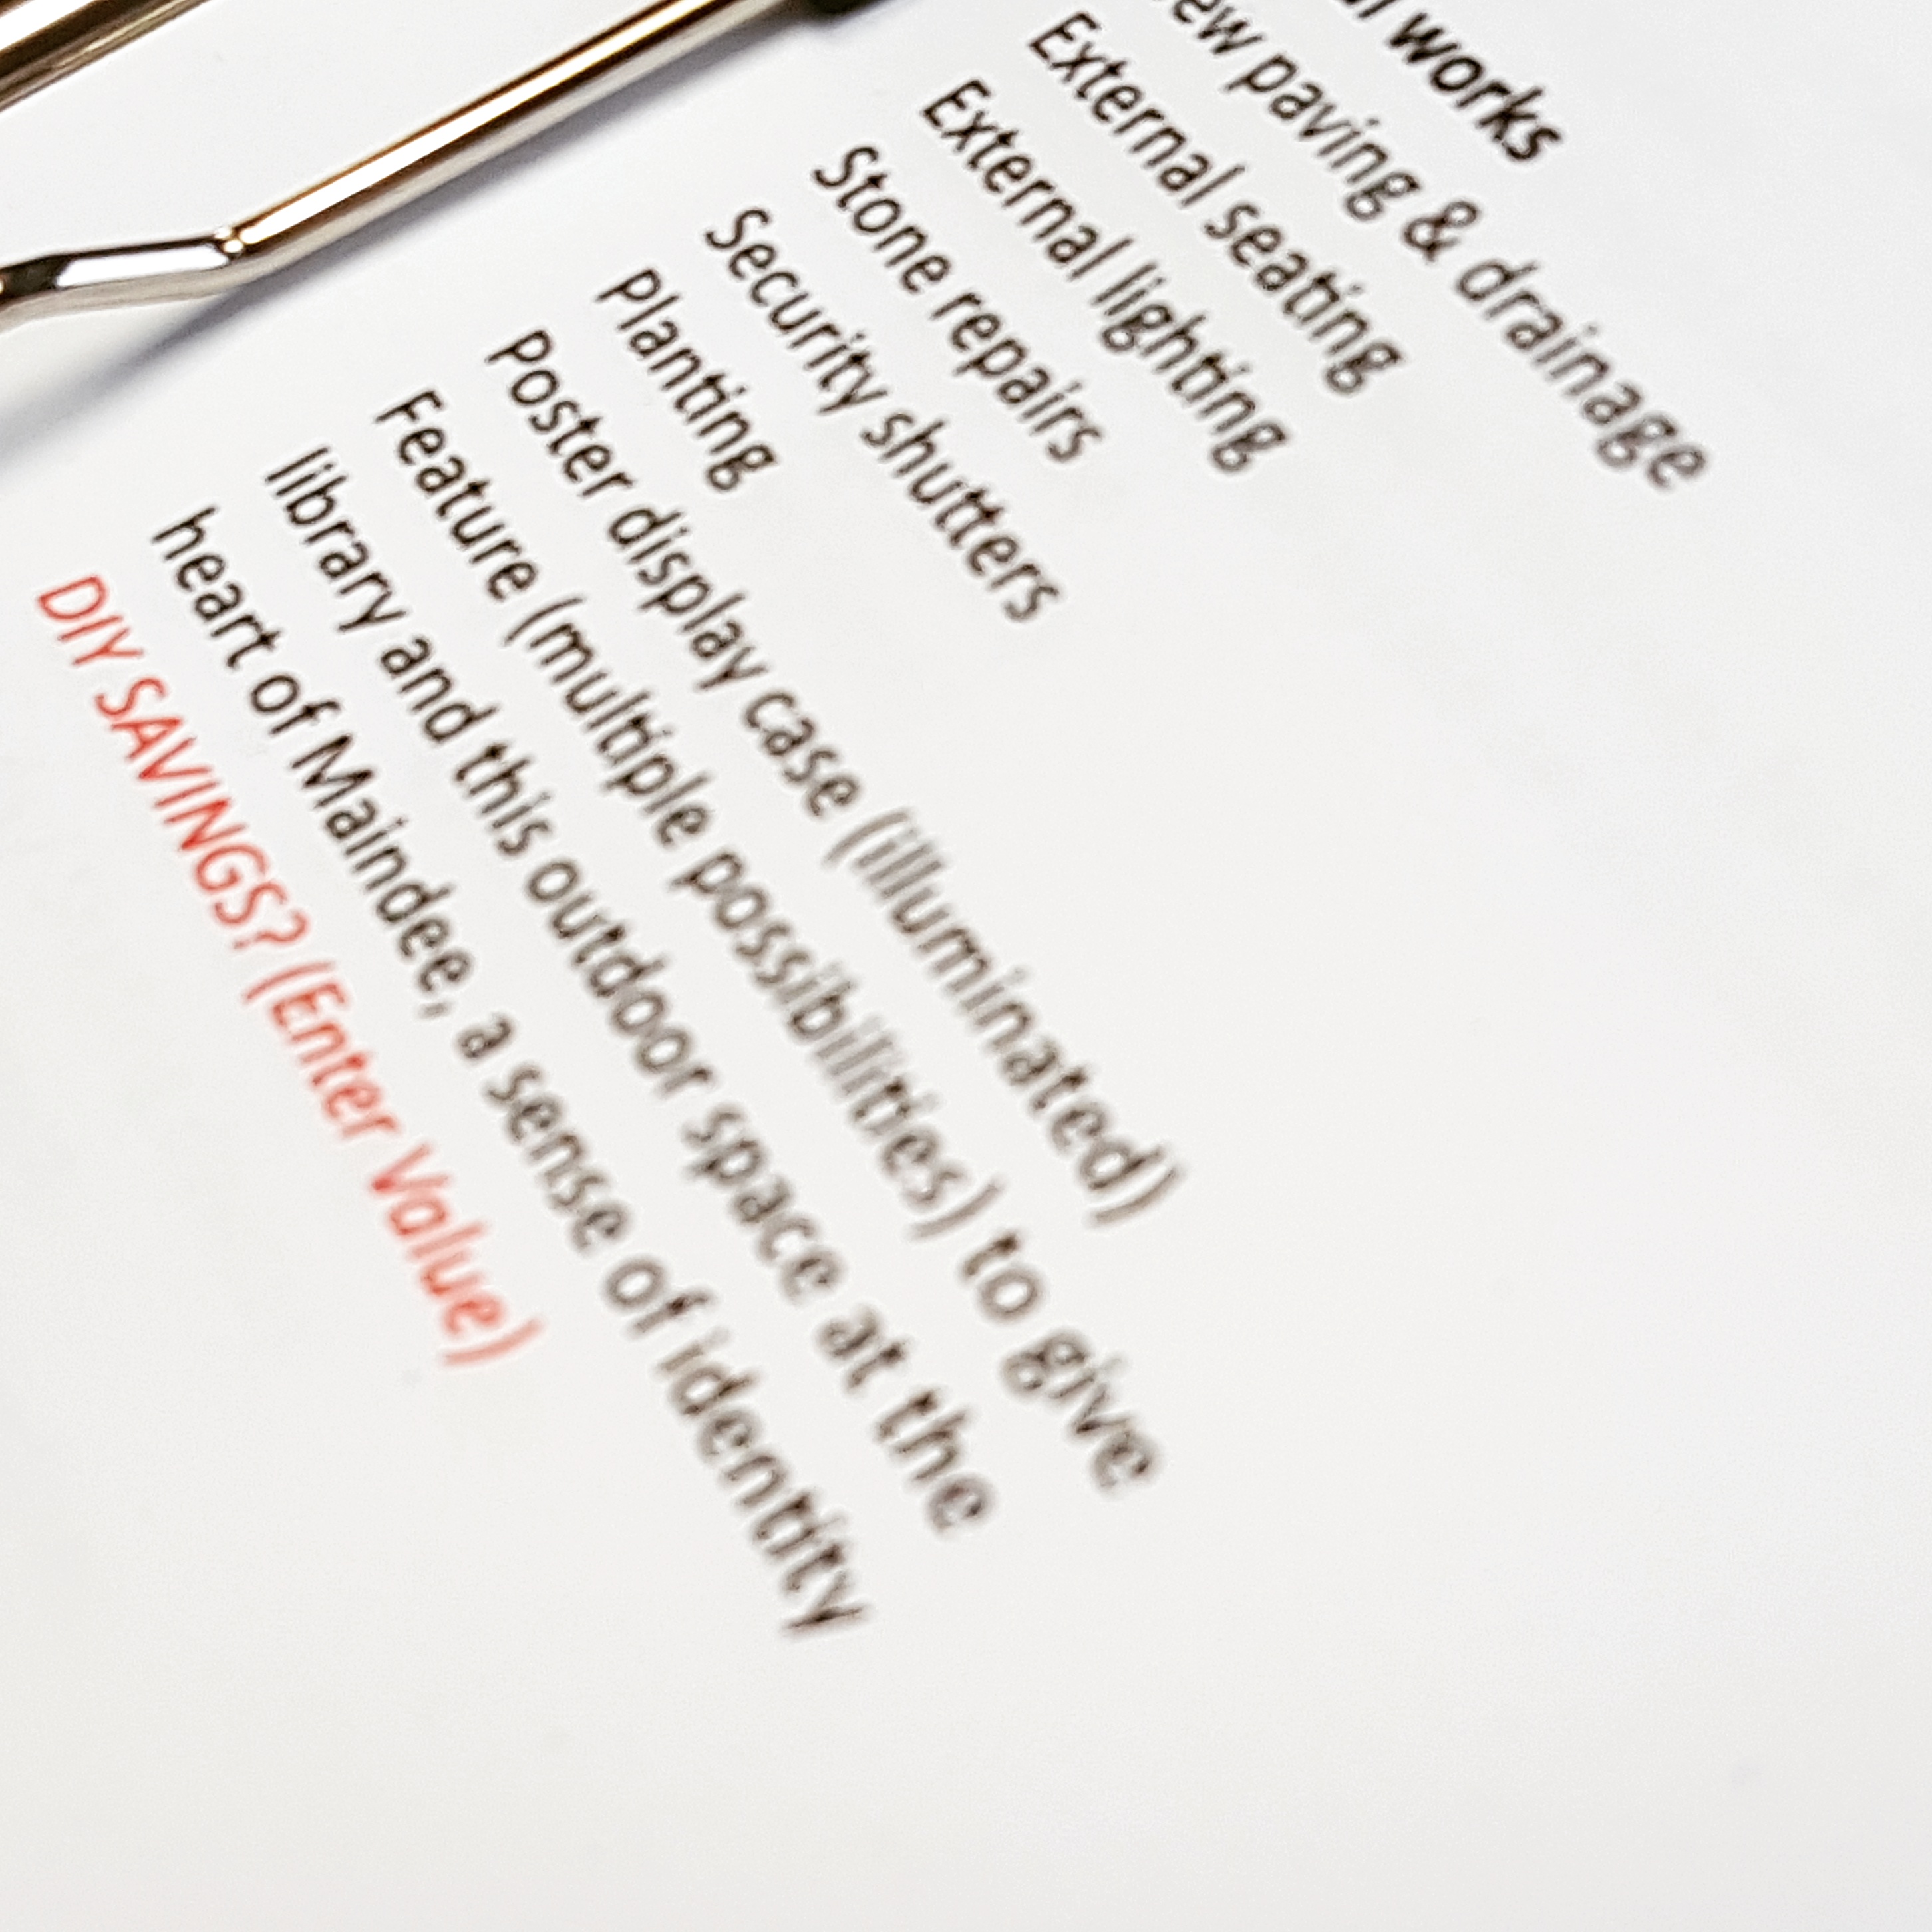 works
paving & drainage
External seating
External lighting
Stone repairs
Security shutters
Planting
Poster display case (illuminated)
Feature (multiple possibilities) to give
library and this outdoor space at the
heart of Maindee, a sense of identity
DIY SAVINGS? (Enter Value)